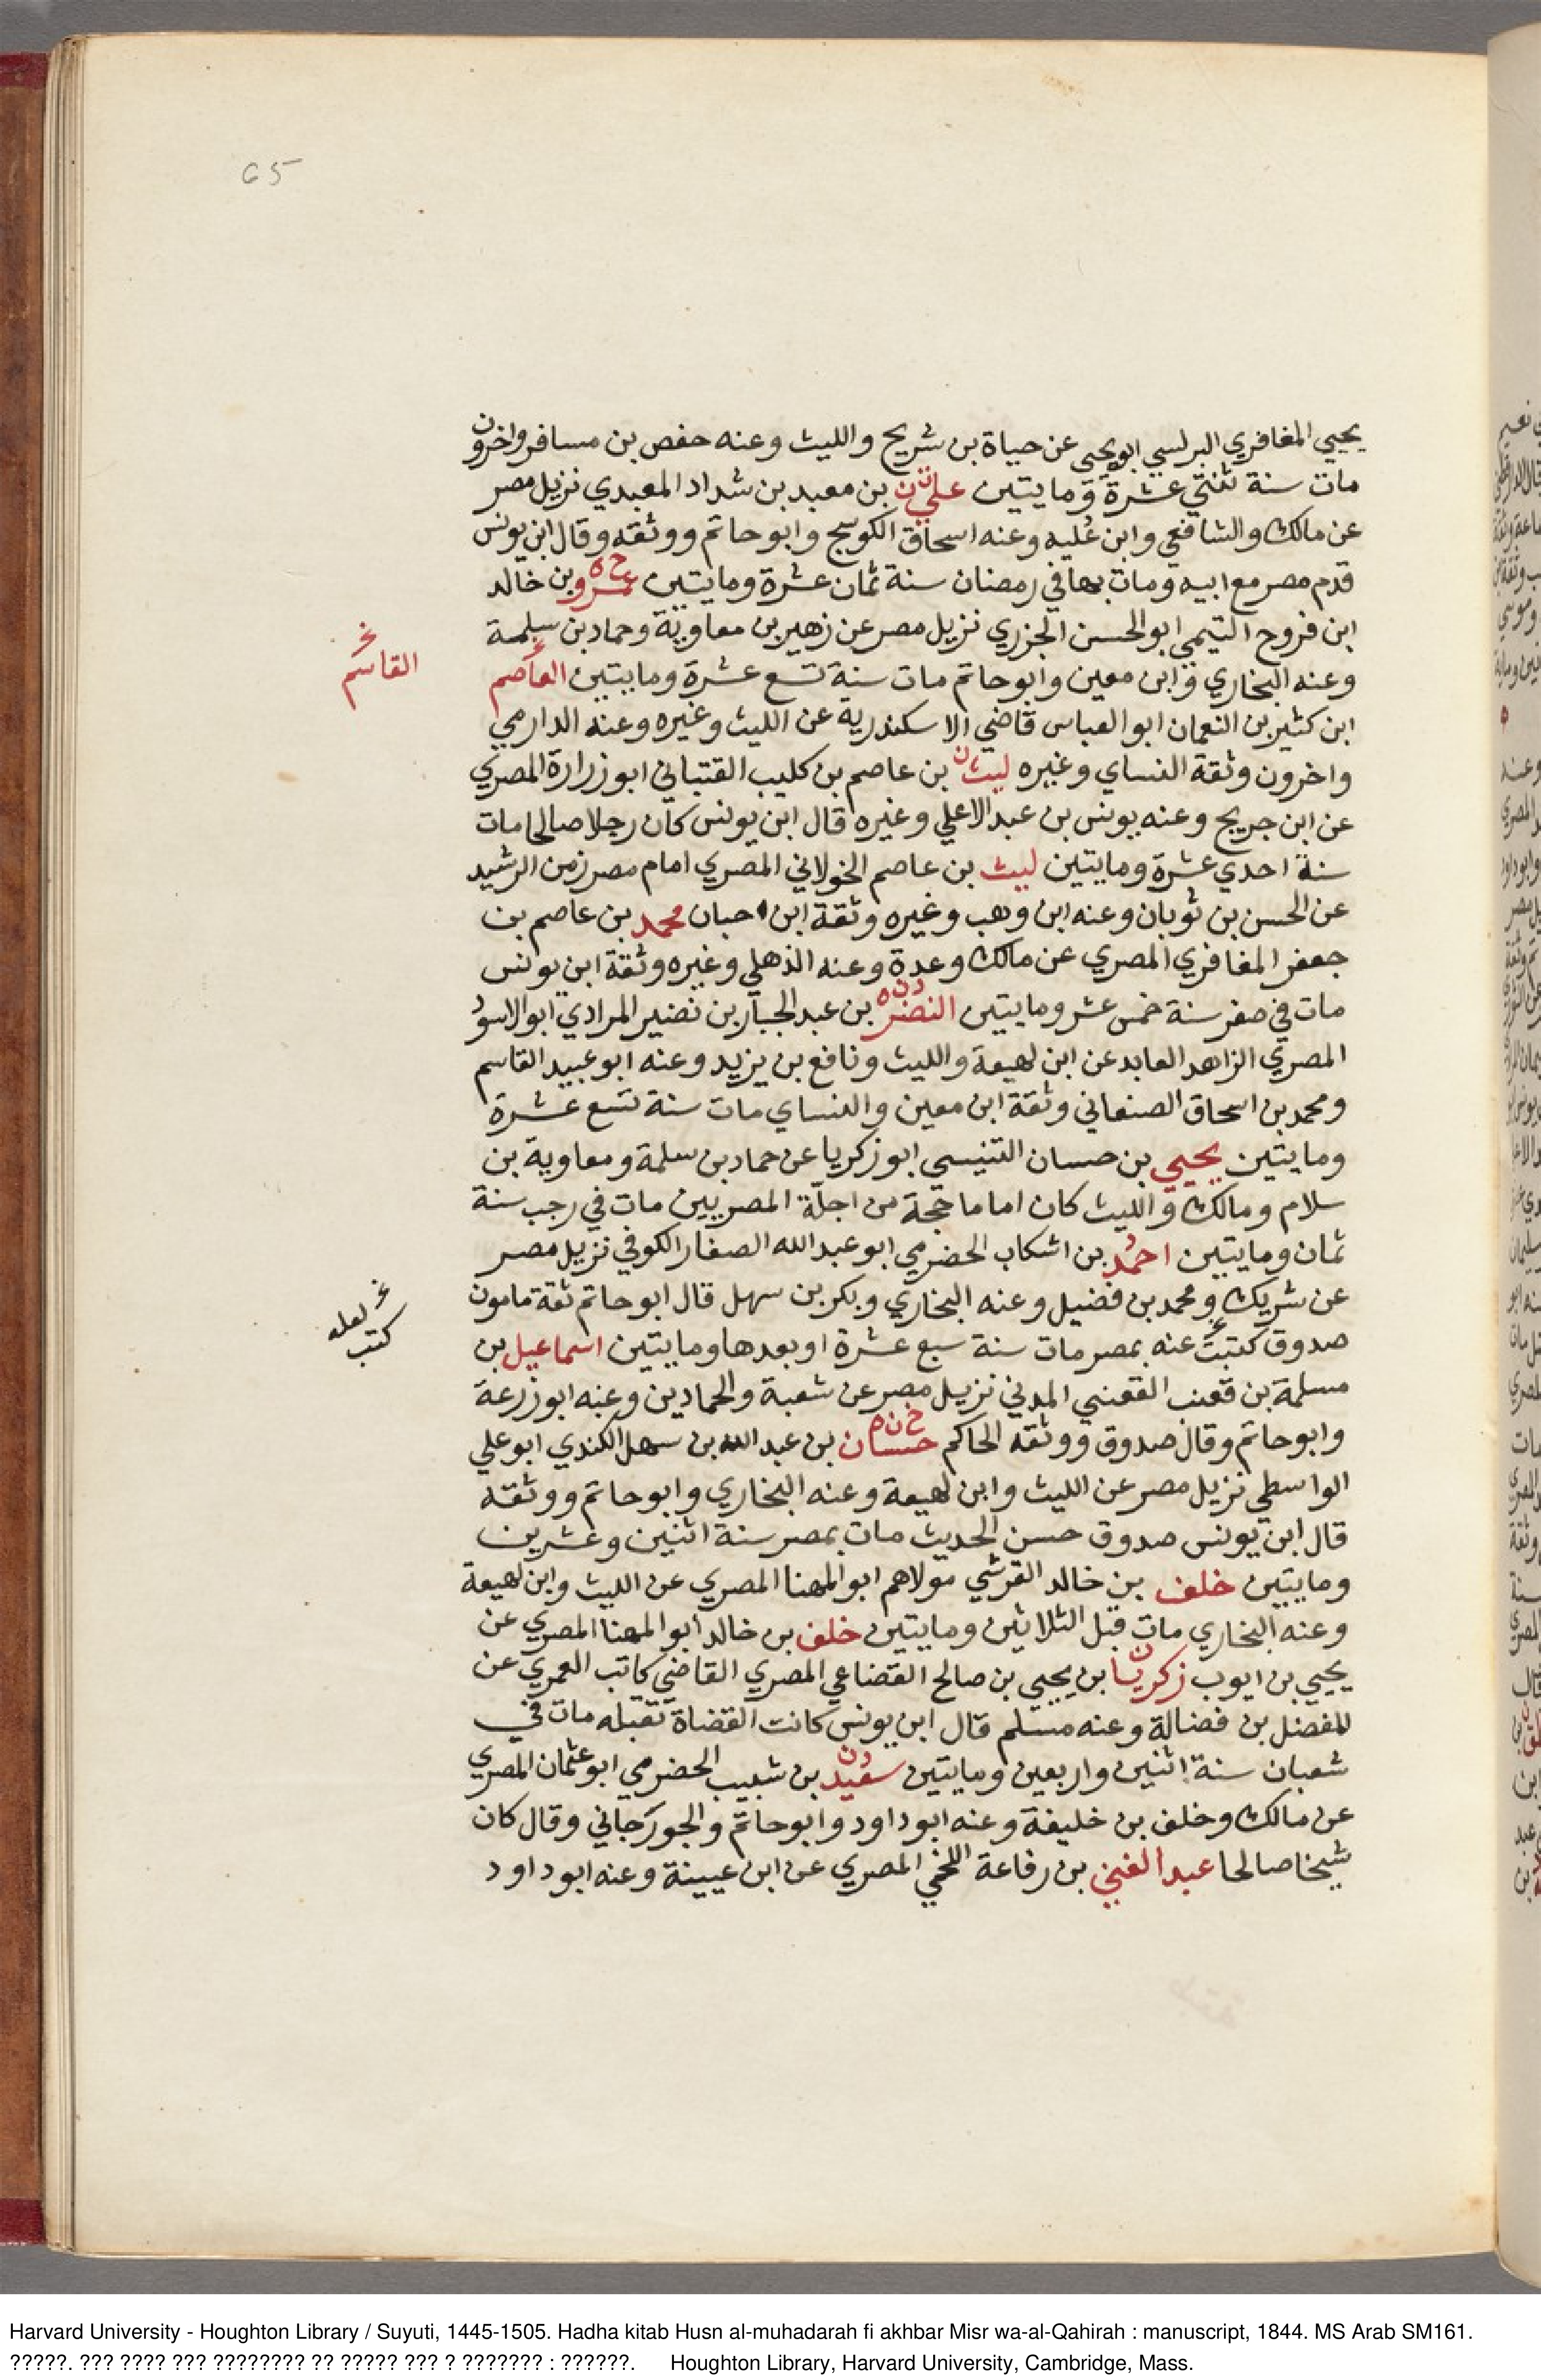 65
يحيي المغافري البرلسي ابو يحيى عن حياة بن شريح والليث وعنه حفص بن مسافر واخرون
مات سنة ثنتي عشرة ومايتين علي بن معبد بن شداد المعبدي نزيل مصر
عن مالك والشافعي وابن عليه وعنه اسحاق الكوسج وابو حاتم ووثقه وقال ابن يونس
قدم مصر مع ابيه ومات بها في رمضان سنة ثمان عشرة ومايتين عمرو بن خالد
ابن فروح التيمي ابو الحسن الجزري نزيل مصر عن زهير بن معاوية وحماد بن سلمة
وعنه البخاري وابن معين وابو حاتم مات سنة تسع عشرة ومايتين العاصم
القاسم
ابن كثير بن النعمان ابو العباس قاضي الاسكندرية عن الليث وغيره وعنه الدارمي
واخرون وثقة النساي وغيره ليث بن عاصم بن كليب القتباني ابو زرارة المصري
عن ابن جريج وعنه يونس بن عبد الاعلي وغيره قال ابن يونس كان رجلا صالحا مات
سنة احدي عشرة ومايتين ليث بن عاصم الخولاني المصري امام مصر زمن الرشيد
عن الحسن بن ثوبان وعنه ابن وهب وغيره وثقة ابن حبان محمد بن عاصم بن
جعفر المغافري المصري عن مالك وعدة وعنه الذهلي وغيره وثقة ابن يونس
مات في صفر سنة خمس عشر ومايتين النضر بن عبد الجبار بن نضير المرادي ابو الاسود
المصري الزاهد العابد عن ابن لهيعة والليث ونافع بن يزيد وعنه ابو عبيد القاسم
ومحمد بن اسحاق الصنعاني وثقة ابن معين والنساي مات سنة تسع عشرة
ومايتين يحيي بن حسان التنيسي ابو زكريا عن حماد بن سلمة ومعاوية بن
سلام ومالك والليث كان اماما حجة من اجلة المصريين مات في رجب سنة
ثمان ومايتين احمد بن اشكاب الحضرمي ابو عبد الله الصفار الكوفي نزيل مصر
عن شريك ومحمد بن فضيل وعنه البخاري وبكر بن سهل قال ابو حاتم ثقة مامون
صدوق كتبت عنه بمصر مات سنة سبع عشرة او بعدها ومايتين اسماعيل بن
لعله كتب
مسلمة بن قعنب القعنبي المدني نزيل مصر عن شعبة والحمادين وعنه ابو زرعة
وابو حاتم وقال صدوق ووثقه الحاكم حسان بن عبد الله بن سهل الكندي ابو علي
الواسطي نزيل مصر عن الليث وابن لهيعة وعنه البخاري وابو حاتم ووثقه
قال ابن يونس صدوق حسن الحديث مات بمصر سنة اثنين وعشرين
ومايتين خلف بن خالد القرشي مولاهم ابو المهنا المصري عن الليث وابن لهيعة
وعنه البخاري مات قبل الثلاثين ومايتين خلف بن خالد ابو المهنا المصري عن
يحيي بن ايوب زكريا بن يحيي بن صالح القضاعي المصري القاضي كاتب العمري عن
المفضل بن فضالة وعنه مسلم قال ابن يونس كانت القضاة تقبله مات في
شعبان سنة اثنين واربعين ومايتين سعيد بن شبيب الحضرمي ابو عثمان المصري
عن مالك وخلف بن خليفة وعنه ابو داود وابو حاتم والجوزجاني وقال كان
شيخا صالحا عبد الغني بن رفاعة اللخمي المصري عن ابن عيينة وعنه ابو داود
Harvard University - Houghton Library / Suyuti, 1445-1505. Hadha kitab Husn al-muhadarah fi akhbar Misr wa-al-Qahirah : manuscript, 1844. MS Arab SM161.
?????. ??? ???? ??? ???????? ?? ????? ??? ? ??????? : ??????. Houghton Library, Harvard University, Cambridge, Mass.